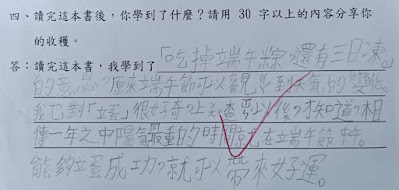 四、讀完這本書後，你學到了什麼？請用 30 字以上的內容分享你
的收穫。
答：讀完這本書，我學到了「吃掉端午粽，還有三日凍。」
的意思。原來端午節可以觀察到天氣的變化。
我也對「立蛋」很好奇。上網查以後，才知道，相
傳一年之中陽氣最重的時間就在端午節中午。
能夠立蛋成功，就可以帶來好運。